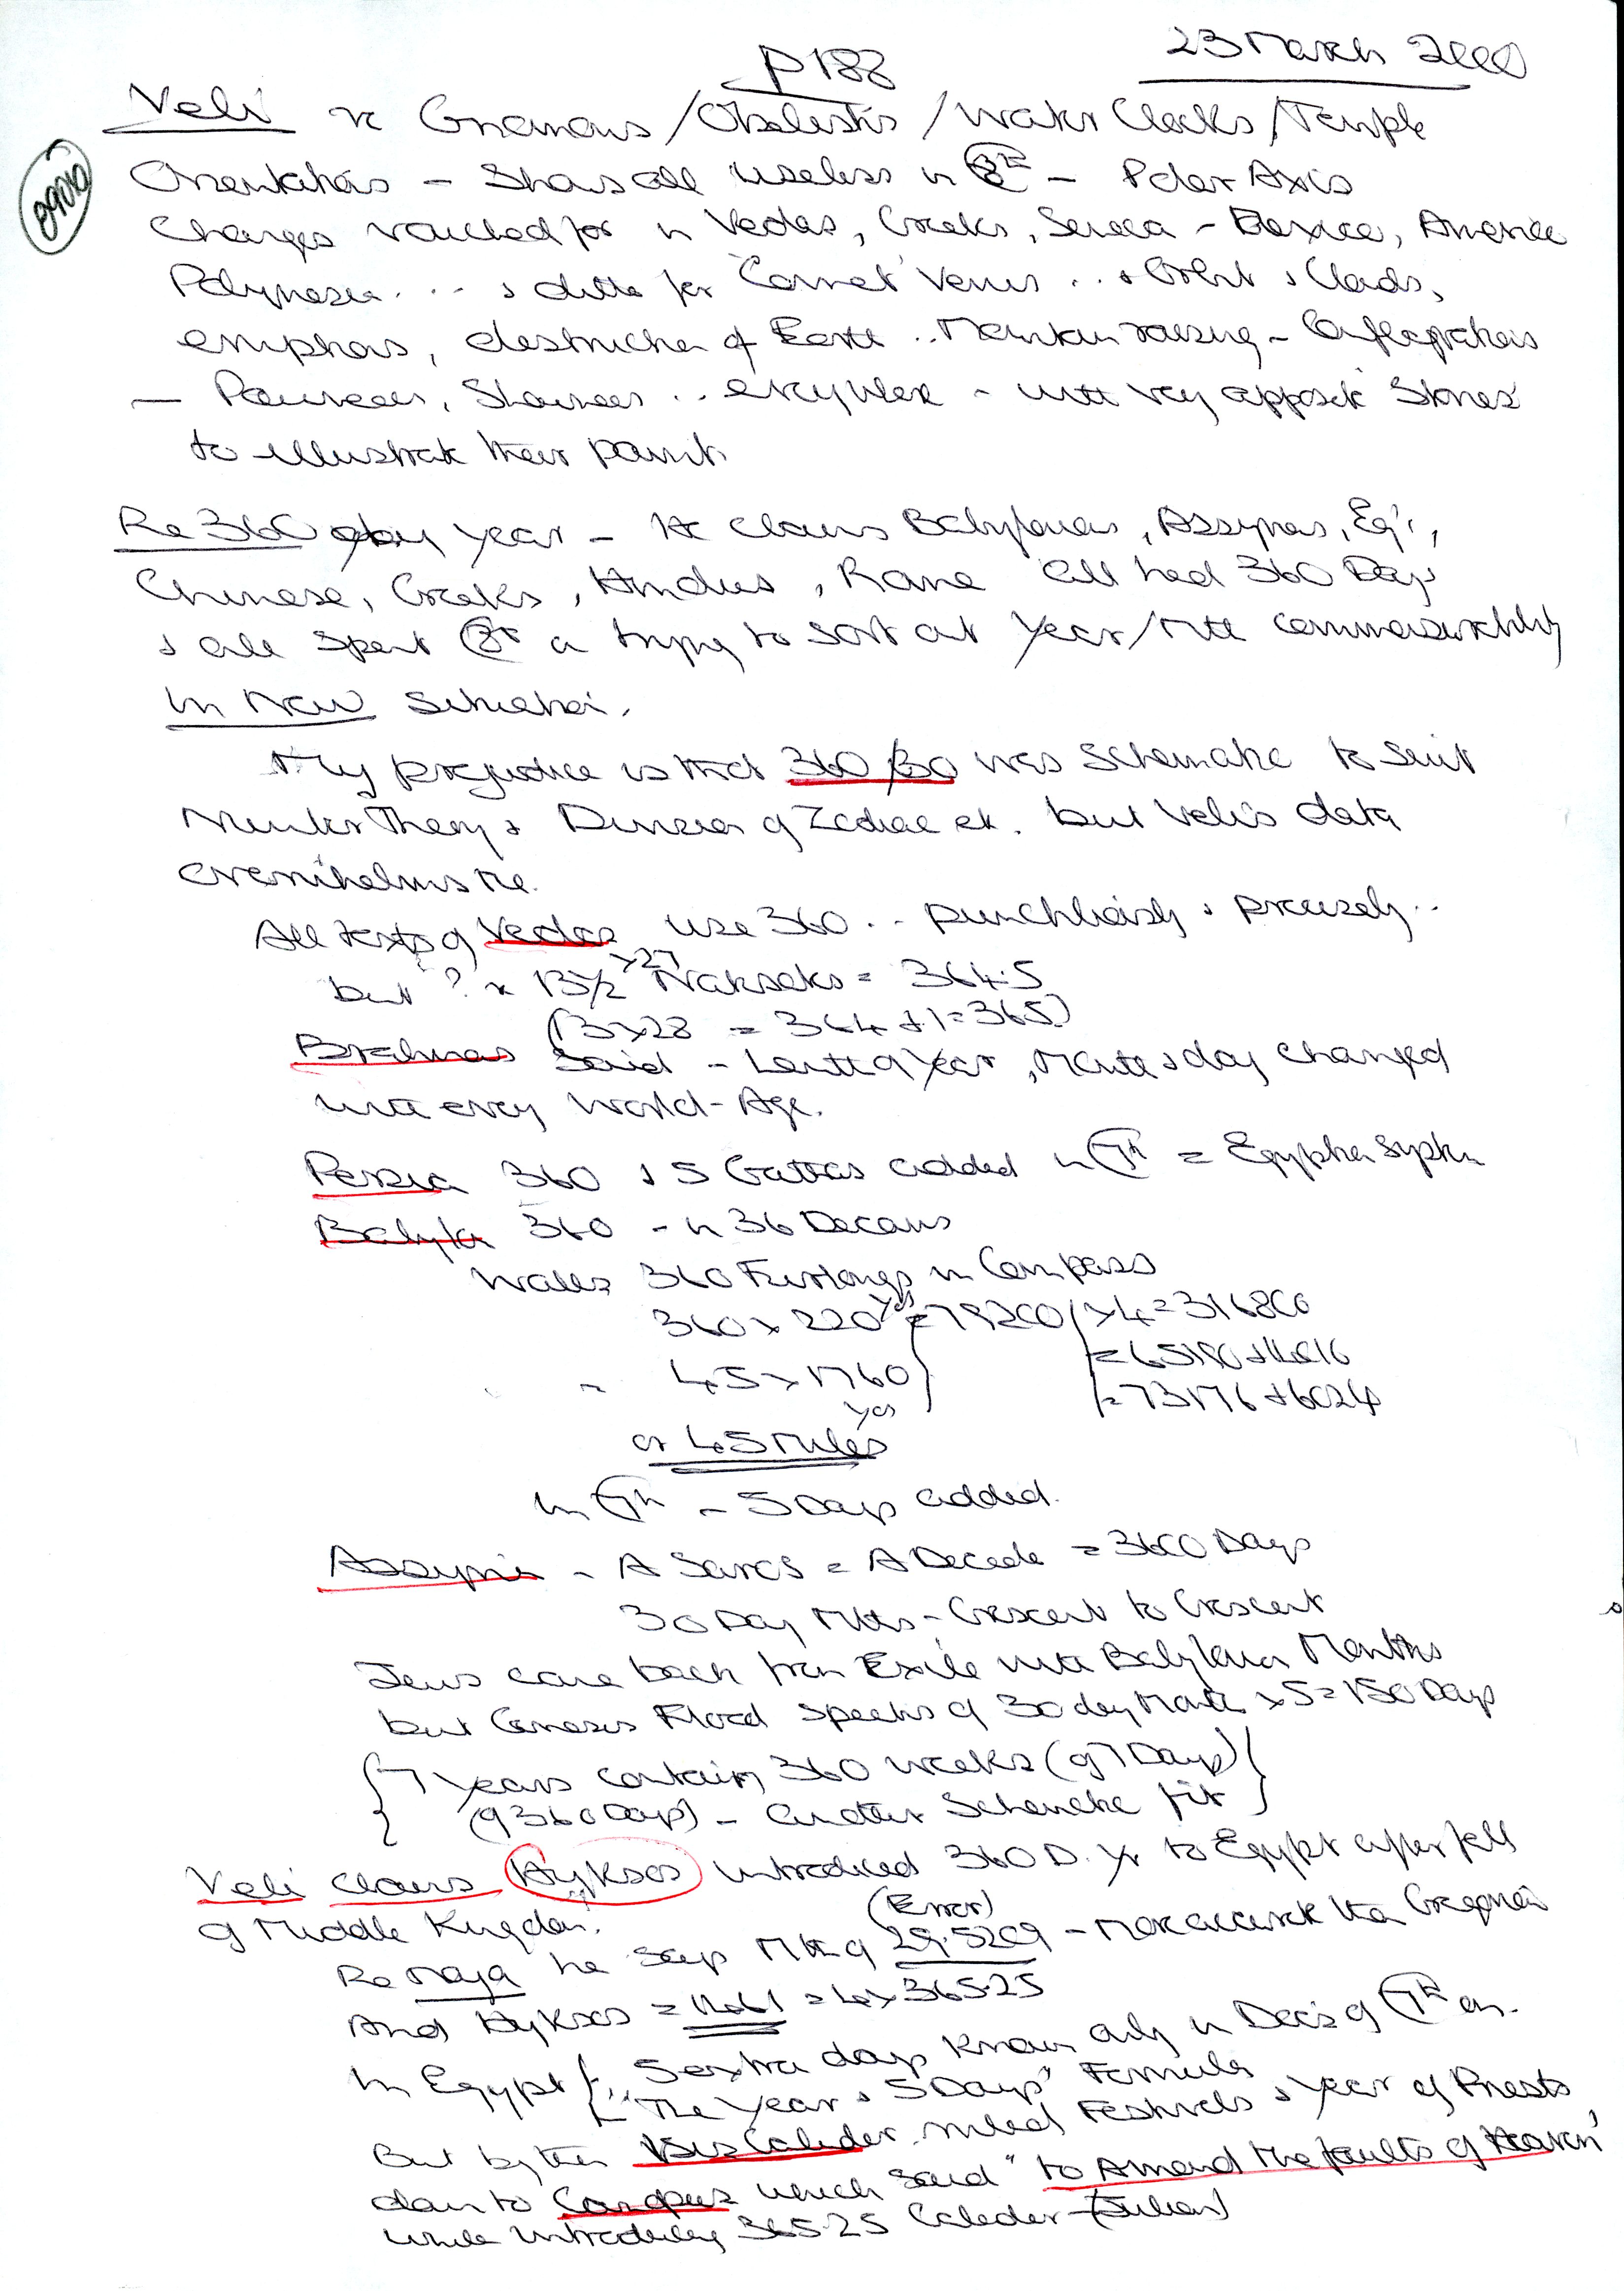 23 March 2000
P188
Veli re Gnomons / Obelisks / Water Clocks / Temple
Orientations – Shows all useless in 8th – Polar Axis
Changes vouched for in Vedas, Greeks, Seneca – Mexico, America
Polynesia ... & ditto for "Comet" Venus .. & Orbit & Clouds,
, destruction of Earth .. Mountain raising – Conflagrations
– , .. everywhere – with very apposite Stories
to illustrate their point.
09010
Re 360 day year – He claims Babylonians, Assyrians, Eg's,
Chinese, Greeks, Hindus, Rome all had 360 Days
& all spent 8th c trying to sort out Year/Mth commensurability
in New situation.
My prejudice is that 360/30 was Schematic to suit
Number Theory & Division of Zodiac etc. but Veli's data
overwhelms me.
All texts of Vedas use 360 .. & precisely ..
but ? x 13½ x27 Nakseks = 364.5
(13x28 = 364 +1 = 365)
Brahmas said – Length of Year, Month & day changed
with every World-Age.
Persia 360 & 5 Gathas added in 7th = Egyptian System
Babylon 360 – in 36 Decans
Walls 360 Furlongs in Compass
360 x 220 yds = 79200 x4 = 316800
= 65180+
= 45 x 1760 = 73176+6024
yds
or 45 Miles
in 7th – 5 Days added.
Assyria – A Saros = A Decade = 3600 Days
30 Day Mths – Crescent to Crescent
Jews came back from Exile with Babylonian Months
but Genesis Flood speaks of 30 day Month x 5 = 150 Days
{7 Years contain 360 weeks (of 7 Days)}
{(of 360 Days) – another Schematic fit}
Veli claims Hyksos introduced 360 D. Yr to Egypt after fall
of Middle Kingdom.
(Error)
Re Maya he says Mth of 29.5209 – More accurate than Gregorian
And Hyksos = 1461 = 4 x 365.25
In Egypt { 5 extra days known only in Dec's of 7th on.
"The Year & 5 Days" Formula
But by then calendar ruled Festivals & Year of Priests
down to Canopus which said "to Amend the faults of Heaven"
while introducing 365.25 Calender (Julian)